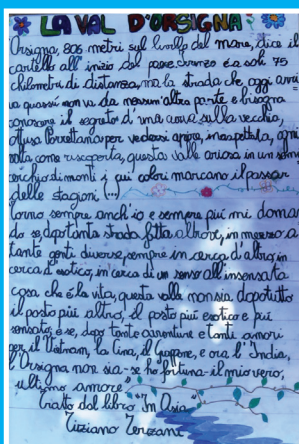 LA VAL D'ORSIGNA
Orsigna, 806 metri sul livello del mare, dice il
cartello all'inizio del paese. Firenze è a soli 75
chilometri di distanza, ma la strada che oggi arri
va quassù non va da nessun'altra parte e bisogna
conoscere il segreto d'una curva sulla vecchia,
ottusa Porrettana per vedersi aprire, inaspettata, ogni
volta come riscoperta, questa valle ariosa in un semi
cerchio di monti i cui colori marcano il passar
delle stagioni (...)
Torno sempre anch'io e sempre più mi doman
do se dopo tanta strada fatta altrove, in mezzo a
tante genti diverse, sempre in cerca d'altro, in
cerca d'esotico, in cerca di un senso all'insensata
cosa che è la vita, questa valle non sia, dopotutto
il posto più altro, il posto più esotico e più
sensato, e se, dopo tante avventure e tanti amori
per il Vietnam, la Cina, il Giappone, e ora l'India,
l'Orsigna non sia - se ho fortuna - il mio vero,
ultimo amore
Tratto dal libro "In Asia"
Tiziano Terzani